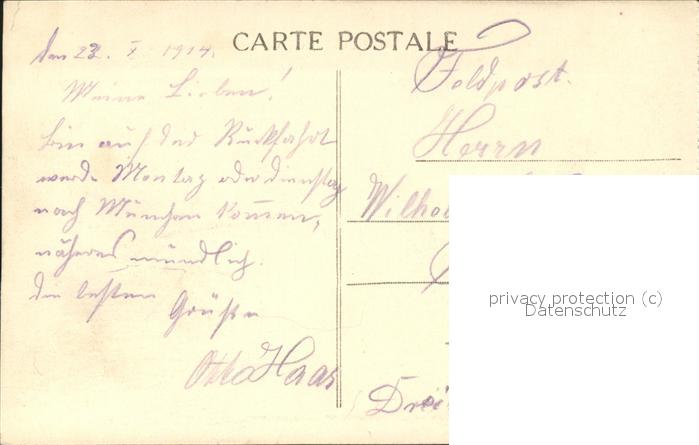 CARTE POSTALE
den 22. X. 1914.
Meine Lieben!
bin auf der Rückfahrt
werde Montag oder dienstag
nach München kommen,
näheres mündlich.
die besten
Grüße
Otto Haas
Feldpost.
Herrn
privacy protection (c)
Datenschutz